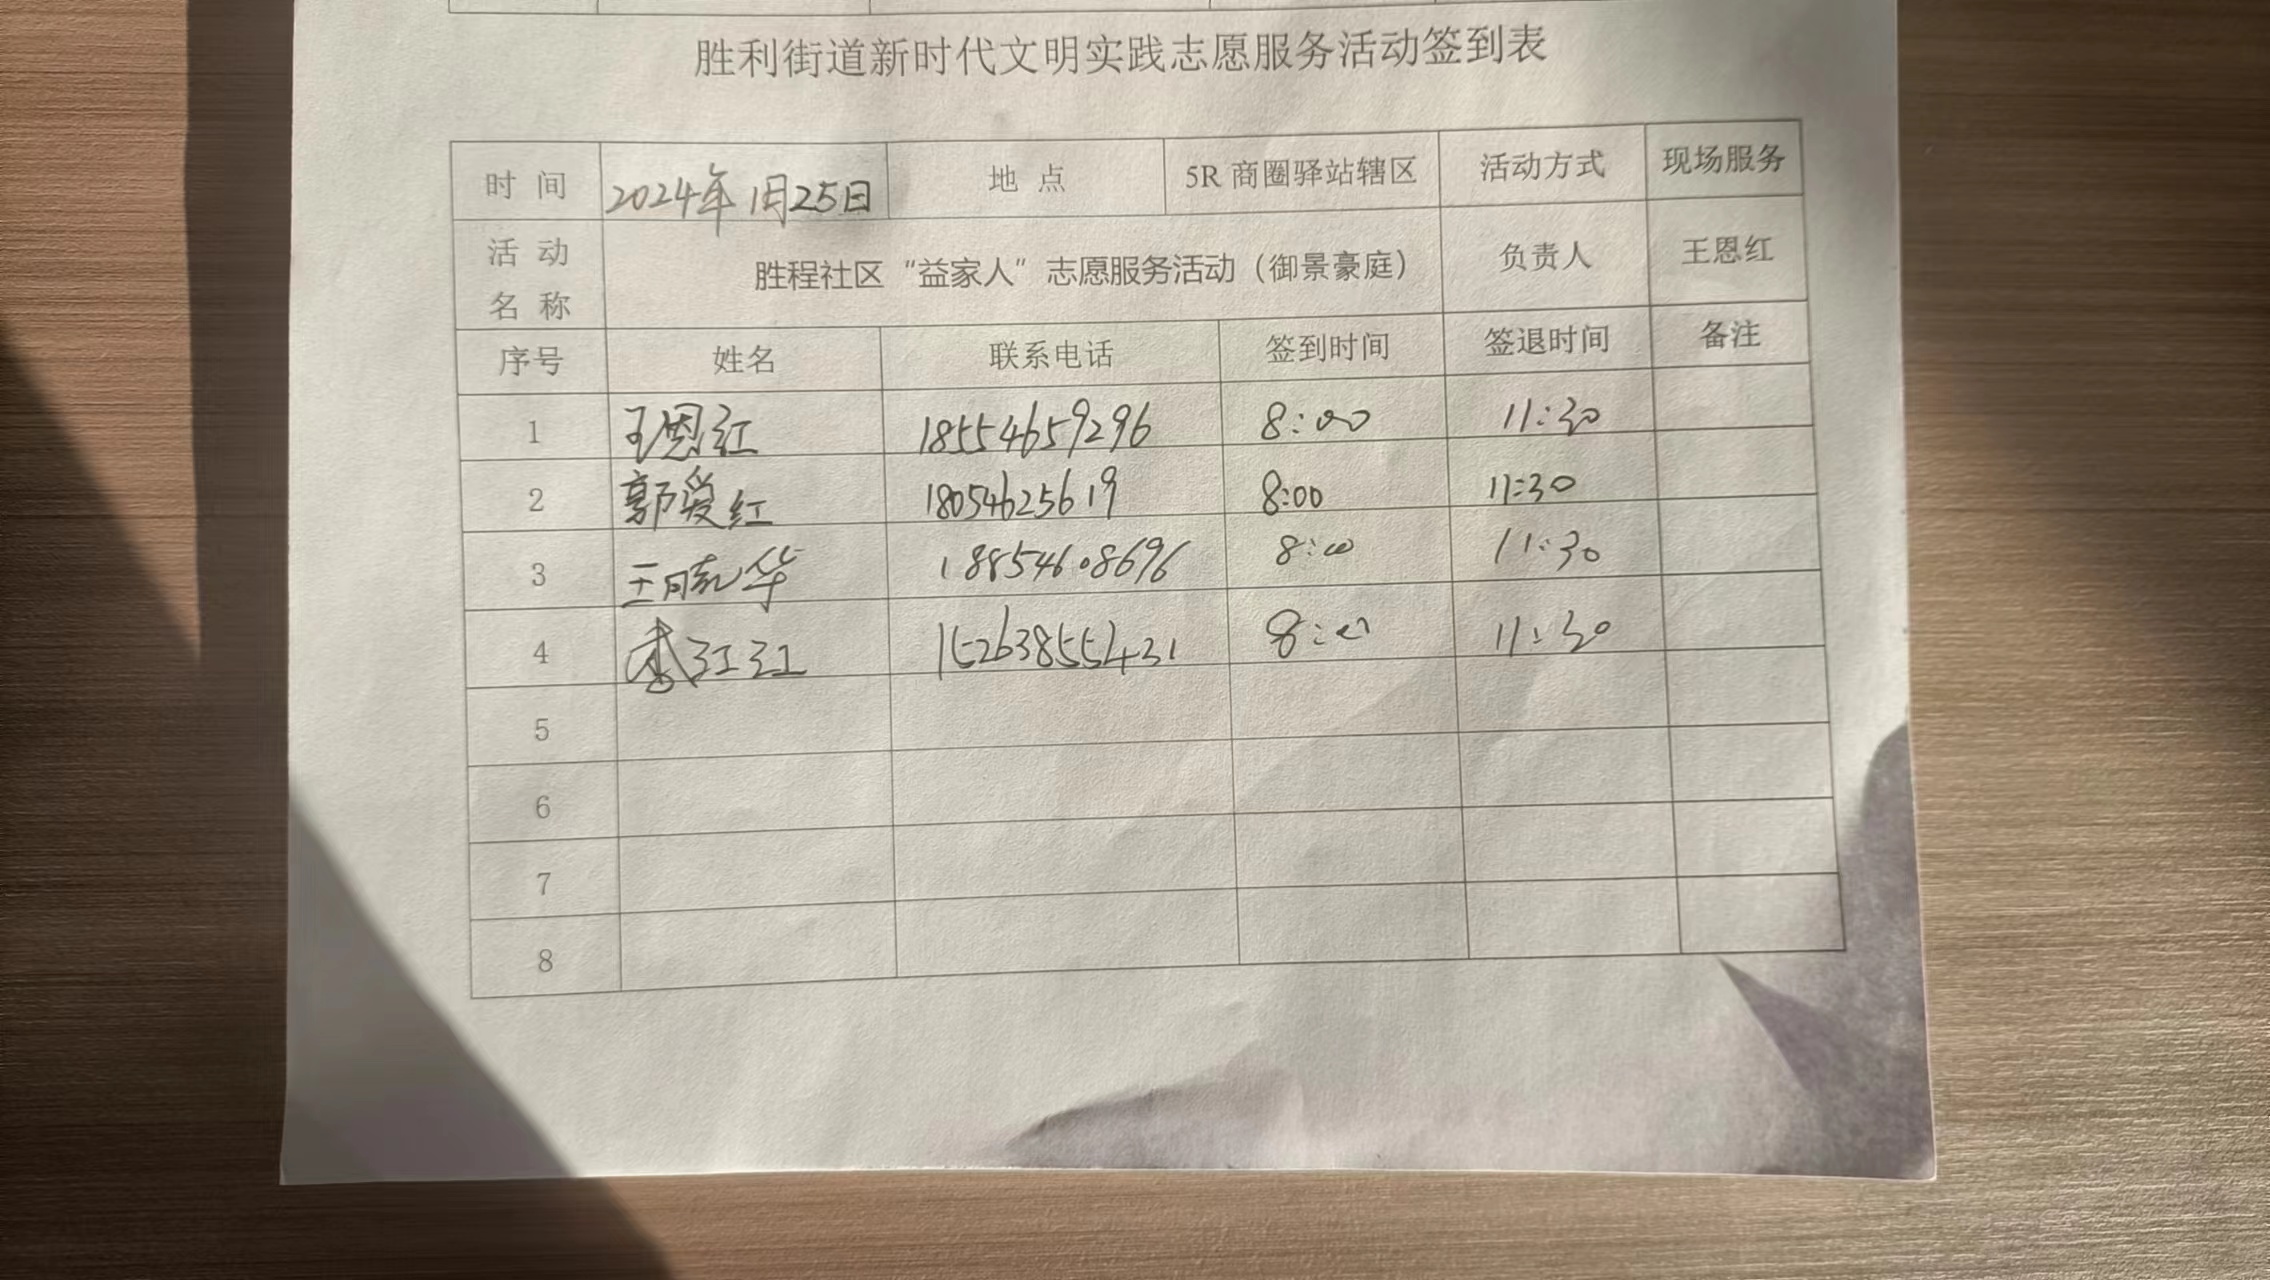 胜利街道新时代文明实践志愿服务活动签到表
时 间 2024年1月25日 地 点 5R 商圈驿站辖区 活动方式 现场服务
活 动 名 称 胜程社区“益家人”志愿服务活动（御景豪庭） 负责人 王恩红
序号 姓名 联系电话 签到时间 签退时间 备注
1 王恩红 18554659296 8:00 11:30
2 郭爱红 18054625619 8:00 11:30
3 王晓华 18854608696 8:00 11:30
4 李红红 15263855431 8:00 11:30
5
6
7
8